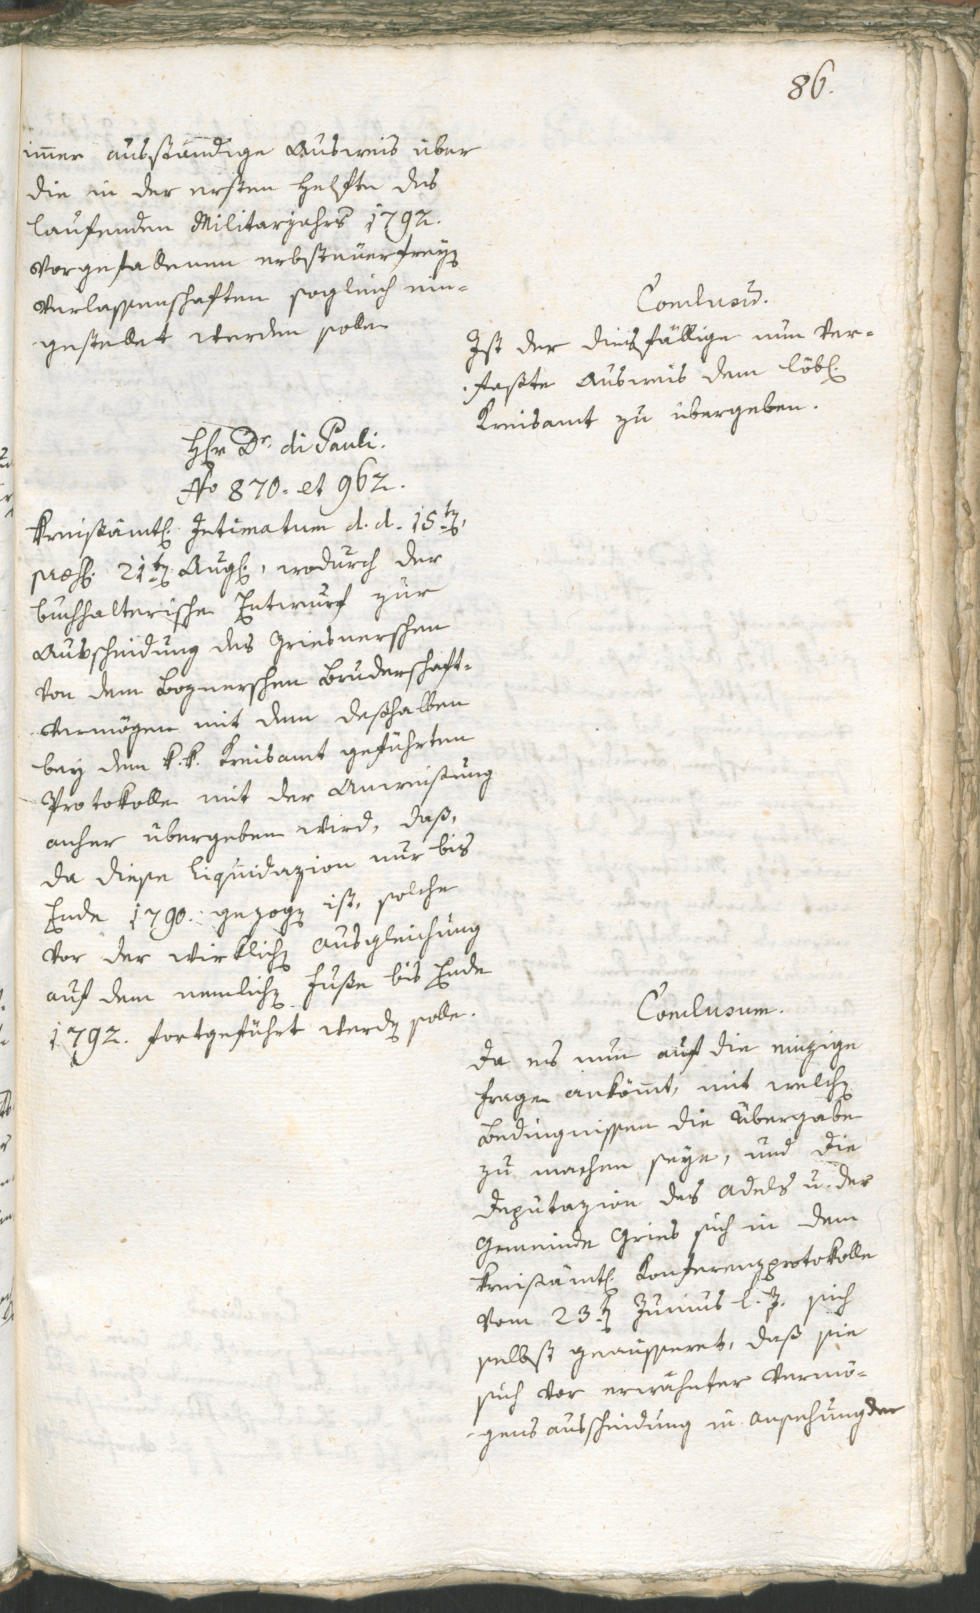 86.
immer ausständige Ausweis über
die in der ersten Helfte des
laufenden Militarjahrs 1792.
Vorgefallenen erbsteüerfreyen
Verlassenschaften sogleich ein¬
gestellet werden solle
Conclusum.
Ist der diesfällige nun Ver¬
faßte Ausweis dem löbl:
Kreisamt zu übergeben.
H̄r Dr. di Pauli.
No 870. et 962.
Kreisämtl: Intimatum d. d. 15ten,
præs: 21ten Aug:, wodurch der
buchhalterische Entwurf zur
Ausscheidung des Griesnerschen
Von dem Boznerschen Bruderschaft¬
vermögen mit dem deßhalben
bey dem k. k. Kreisamt geführten
Protokolle mit der Anweisung
anher übergeben wird, daß,
da diese Liquidazion nur bis
Ende 1790. gezogen ist, solche
Vor der wirklichen ausgleichung
auf dem nemlichen Fuße bis Ende
1792. fortgeführt werden solle.
Conclusum.
Da es nun auf die einzige
Frage ankömmt, mit welchen
Bedingnissen die Übergabe
zu machen seye, und die
Deputazion des Adels u. der
Gemeinde Gries sich in dem
kreisämtl: Konferenzprotokolle
Vom 23ten Junius l. J. sich
selbst geäusseret, daß sie
sich Vor erwähnter Vermö¬
gens ausscheidung in Ansehung der